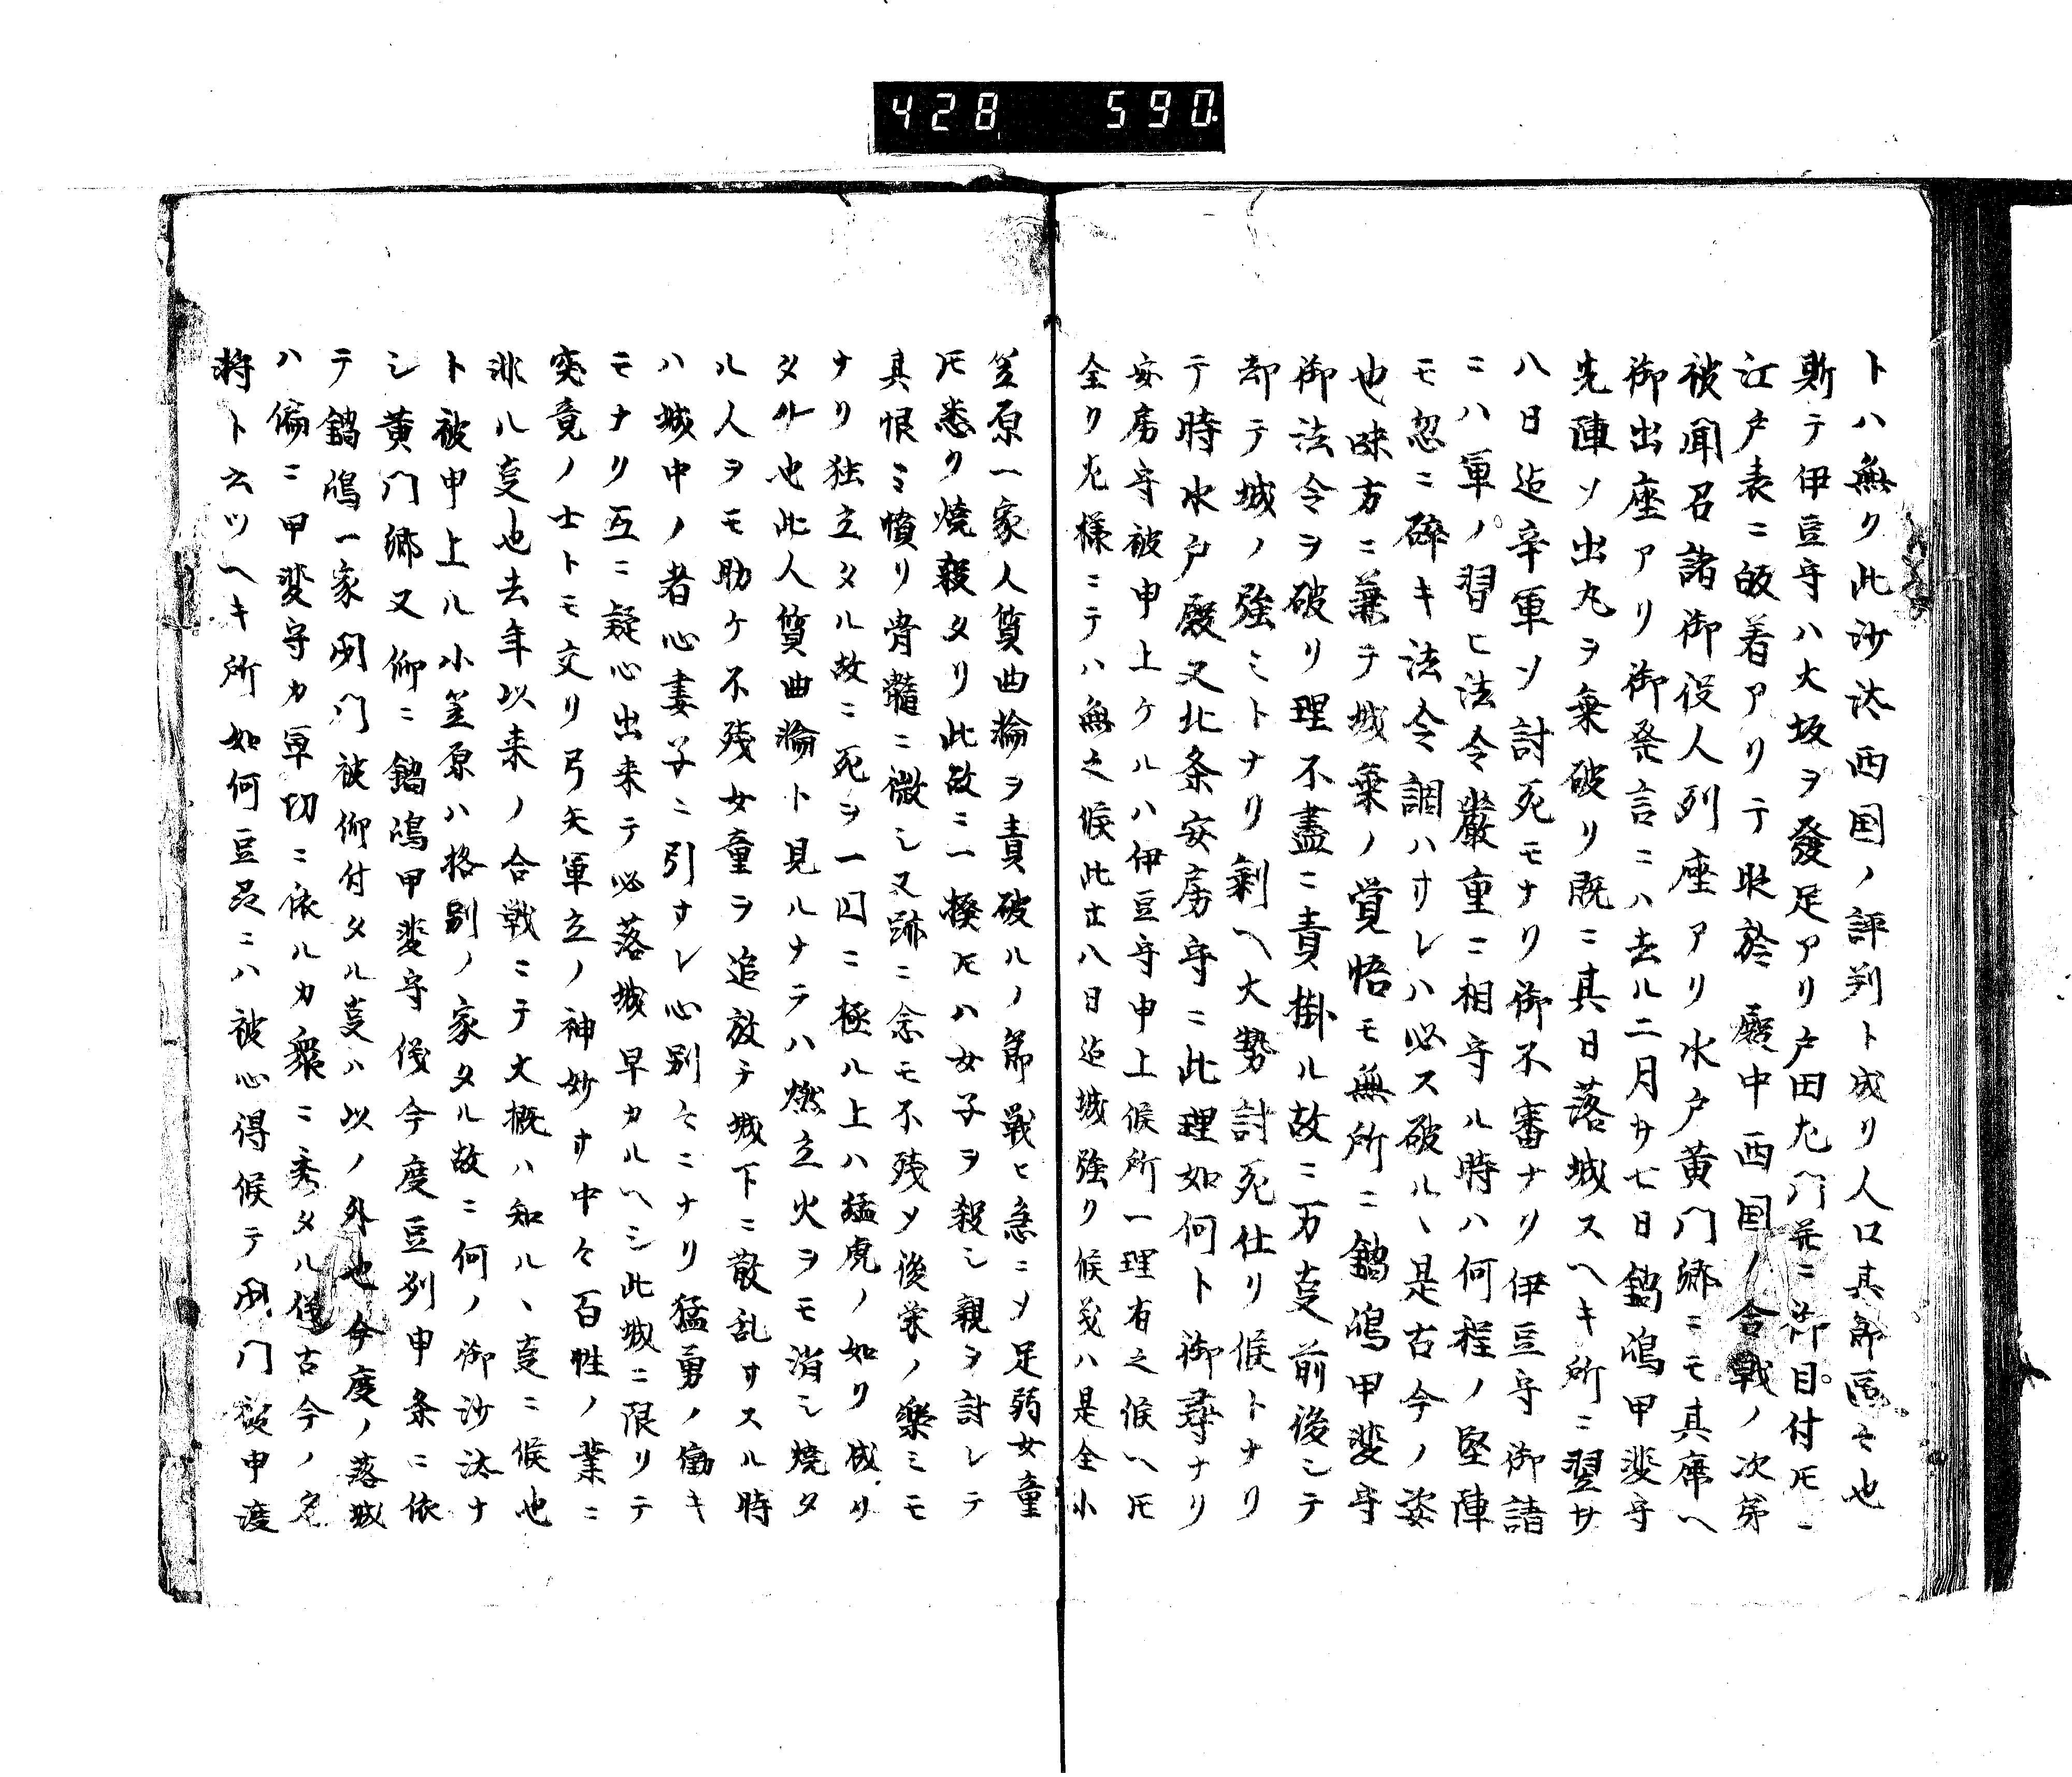 428 590
トハ無ク此沙汰西国ノ評判ト成リ人口其節區々也
斯テ伊豆守ハ大坂ヲ發足アリ戸田左門并ニ御目付𪜈ニ
江戸表ニ皈着アリテ於 殿中西国ノ合戰ノ次第
被聞召諸御役人列座アリ水戸黄門郷ニモ其席ヘ
御出座アリ御発言ニハ去ル二月廿七日鍋嶋甲斐守
先陣ソ出丸ヲ乗破リ既ニ其日落城スヘキ所ニ翌廿
八日迠辛軍ソ討死モナリ御不審ナリ伊豆守御請
ニハ軍ノ習ヒ法令嚴重ニ相守ル時ハ何程ノ堅陣
モ忽ニ碎キ法令調ハサレハ必ス破ルヽ是古今ノ姿
也味方ニ兼テ城乗ノ覚悟モ無所ニ鍋嶋甲斐守
御法令ヲ破リ理不盡ニ責掛ル故ニ万支前後シテ
却テ城ノ強ミトナリ剰ヘ大勢討死仕リ候トナリ
テ時水戸殿又北条安房守ニ此理如何ト御尋ナリ
安房守被申上ケルハ伊豆守申上候所一理有之候ヘ𪜈
全ク左様ニテハ無之候此廿八日迠城強ク候義ハ是全小
笠原一家人質曲輪ヲ責破ルノ節戰ヒ急ニソ足弱女童
𪜈悉ク焼殺タリ此故ニ一揆𪜈ハ女子ヲ殺シ親ヲ討レテ
其恨ミ憤リ骨髓ニ微シ又跡ニ念モ不残ソ後栄ノ樂ミモ
ナリ独立タル故ニ死ヲ一図ニ極ル上ハ猛虎ノ如ク成リ
タ外也此人質曲輪ト見ルナラハ燃立火ヲモ消シ焼タ
ル人ヲモ助ケ不残女童ヲ追放テ城下ニ散乱サスル時
ハ城中ノ者心妻子ニ引サレ心別々ニナリ猛勇ノ働キ
モナリ互ニ疑心出来テ必落城早カルヘシ此城ニ限リテ
突竟ノ士トモ交リ弓矢軍立ノ神妙サ中々百姓ノ業ニ
非ル支也去年以来ノ合戰ニテ大概ハ知ルヽ支ニ候也
ト被申上ル小笠原ハ格別ノ家タル故ニ何ノ御沙汰ナ
シ黄門郷又仰ニ鍋嶋甲斐守儀今度豆刕申条ニ依
テ鍋嶋一家閉門被仰付タル支ハ以ノ外也今度ノ落城
ハ偏ニ甲斐守カ軍切ニ依ルカ衆ニ秀タル儀古今ノ名
将ト云ツヘキ所如何豆刕ニハ被心得候テ閉門被申渡